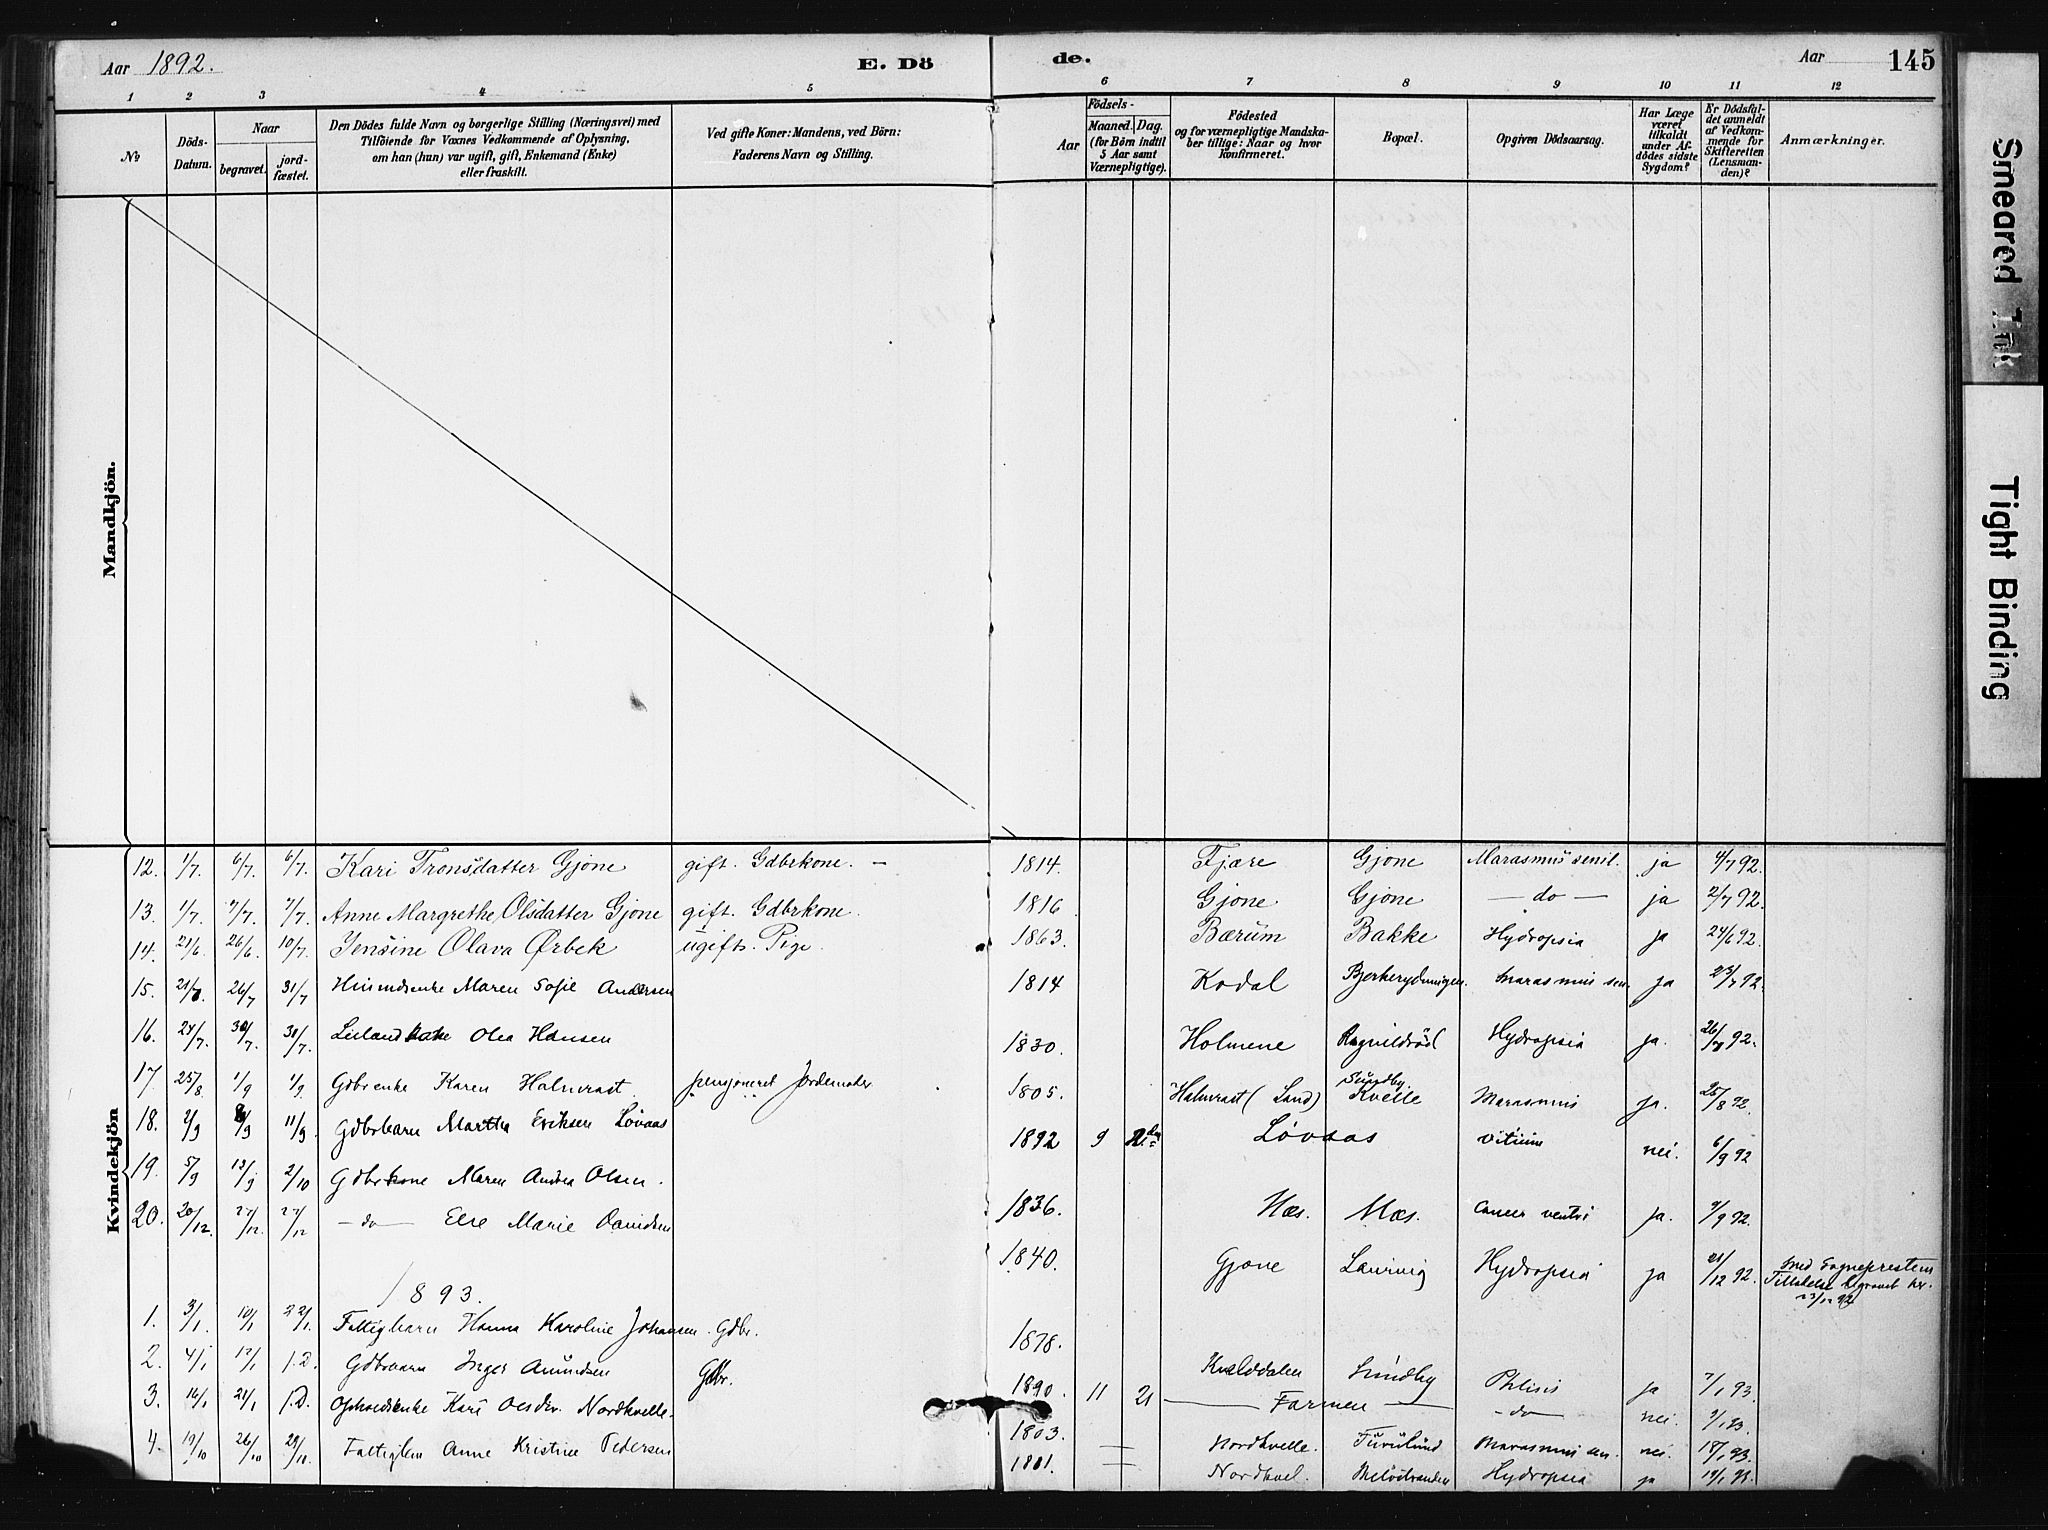 Aar 1892.
E. Dö
de.
Aar
145
1 2 3 4 5 6 7 8 9 10 11 12
№
Döds-Datum.
Naar
begravet.
jord-fæstet.
Den Dödes fulde Navn og borgerlige Stilling (Næringsvei) med Tilföiende for Voxnes Vedkommende af Oplysning, om han (hun) var ugift, gift, Enkemand (Enke) eller fraskilt.
Ved gifte Koner: Mandens, ved Börn: Faderens Navn og Stilling.
Aar
Födsels-
Maaned. Dag. (for Börn indtil 5 Aar samt Værnepligtige).
Födested og for værnepligtige Mandska-ber tillige: Naar og hvor konfirmeret.
Bopæl.
Opgiven Dödsaarsag.
Har Læge været tilkaldt under Af-dödes sidste Sygdom?
Er Dödsfal-det anmeldt af Vedkom-mende for Skifteretten (Lensman-den)?
Anmærkninger.
Mandkjön.
Kvindekjön
12. 1/7. 6/7. 6/7. Kari Tronsdatter Gjone gift. Gdbrkone. — 1814. Fjære Gjone Marasmus senil. ja 4/7 92.
13. 1/7. 7/7. 7/7. Anne Margrethe Olsdatter Gjone gift. Gdbrkone. 1816 Gjone Gjone — do — ja 2/7 92.
14. 21/6. 26/6. 10/7. Jensine Olava Ørbek ugift. Pige. 1863. Bærum Bakke Hydropsia ja 24/6 92.
15. 21/7. 26/7 31/7 Husmdsenke Maren Sofie Andersen 1814 Kodal Bjerkerydningen. Marasmus sen. ja 23/7 92.
16. 24/7. 30/7. 31/7. Olea Hansen 1830. Holmene Ragnildröd Hydropsia ja. 26/7 92.
17. 25/8. 1/9 1/9. Gdbrenke Karen Halmrast. pensjoneret Jordemoder 1805. Halmrast (Land) Sundby. Kvelle Marasmus ja. 25/8 92.
18. 2/9 8/9 11/9. Gdbrbarn Martha Eriksen Løvaas 1892 9 Løvaas vitium nei. 6/9 92
19. 5/9 13/9 2/10 Gdbrkone Maren Andrea Olsen. 1836. Næs. Næs. Cancer ventri ja. 9/9 92.
20. 20/12. 27/12. 27/12 — do — Else Marie Davidsen 1840. Gjone Laurvig Hydropsia ja 21/12 92. Med Sogneprestens Tilladelse begravet her. 23/12 92
1893.
1. 3/1. 10/1 22/1. Fattigbarn Hanna Karoline Johansen. Gdbr. 1878. Kvelddalen Sundby Phtisis ja 7/1 93.
2. 4/1 12/1 J.D. Gdbrbarn Inger Amundsen Gdbr. 1890. 11 21 — Farmen — — do — nei. 9/1 93.
3. 14/1 21/1 J.D. Kari Nordkvelle. 1803. Nordkvelle. Marasmus sen. nei. 18/1 93.
4. 19/10 26/10 29/10. Fattiglem Anne Kristine Pedersen 1801. Nordkvel. Hydropsia ja 19/1 93.
Smeared Ink
Tight Binding